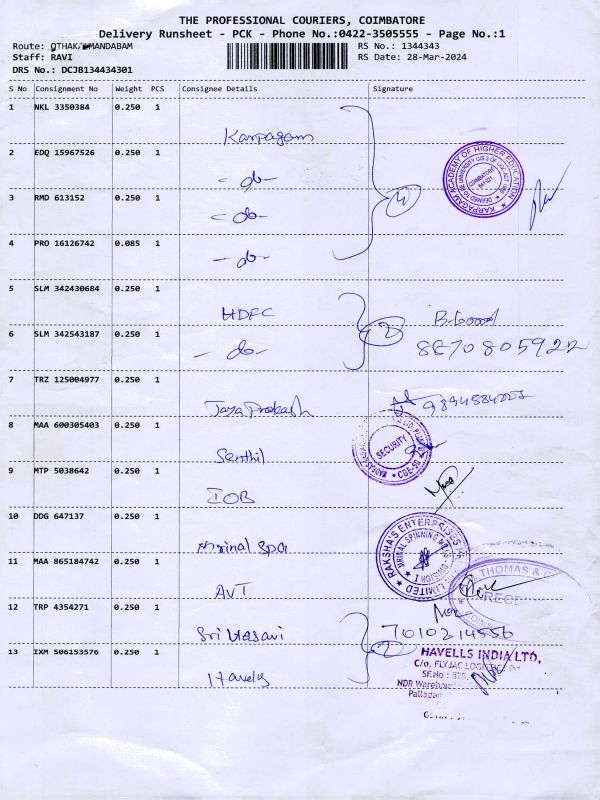 THE PROFESSIONAL COURIERS, COIMBATORE
Delivery Runsheet - PCK - Phone No.:0422-3505555 - Page No.:1
Route: OTHAKALMANDABAM
Staff: RAVI
DRS No.: DCJB134434301
RS No.: 1344343
RS Date: 28-Mar-2024
S No Consignment No Weight PCS Consignee Details Signature
1 NKL 3350384 0.250 1 Karpagam
2 EDQ 15967526 0.250 1 - do -
3 RMD 613152 0.250 1 - do -
4 PRO 16126742 0.085 1 - do -
4
KARPAGAM ACADEMY OF HIGHER EDUCATION
COIMBATORE
641 021
5 SLM 342430684 0.250 1 HDFC
6 SLM 342543187 0.250 1 - do -
2
8870805922
7 TRZ 125004977 0.250 1 Jaya Prakash
8 MAA 600305403 0.250 1 Senthil
SECURITY
CBE-50
9 MTP 5038642 0.250 1 IOB
10 DDG 647137 0.250 1 Mrinal Spg
RAKSHA'S ENTERPRISES
MRINAL SPINNING
DIVISION I
LIMITED
11 MAA 865184742 0.250 1 AVT
THOMAS &
12 TRP 4354271 0.250 1 Sri Vasavi
7010214556
13 IXM 506153576 0.250 1 Havells
2
HAVELLS INDIA LTD,
C/o, FLYJAC
SF.No : 525,
NDR
Palladam